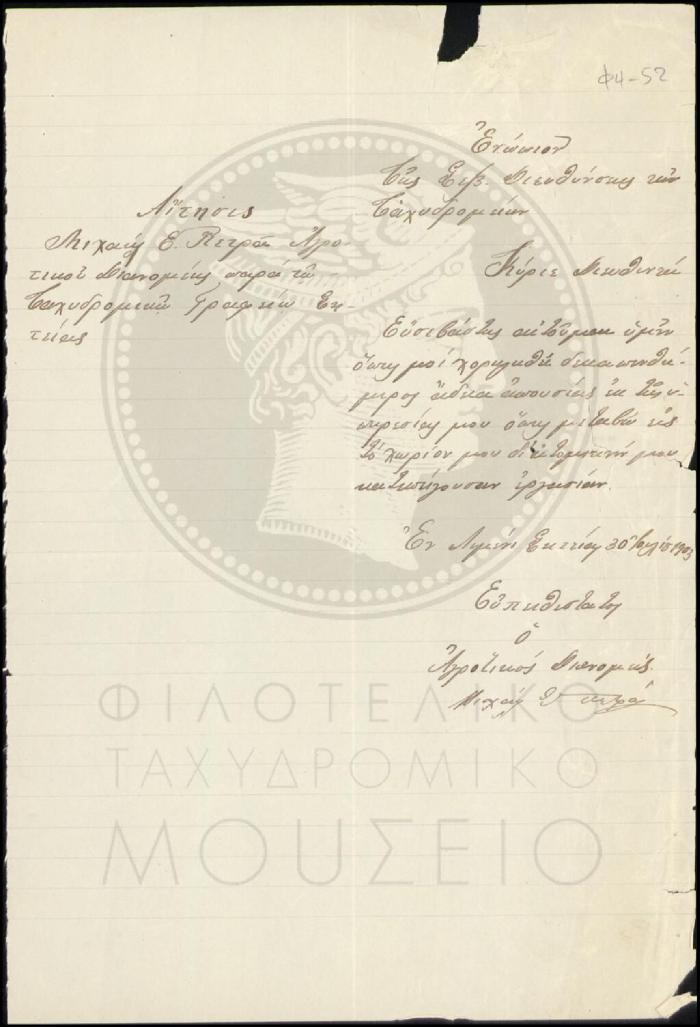 Φ4-52
Ἐνώπιον
Τῆς Σεβ. Διευθύνσεως τῶν
Ταχυδρομείων
Αἴτησις
Μιχαήλ Ε. Πετρᾶ Ἀγρο-
τικοῦ Διανομέως παρά τῶ
Ταχυδρομικῶ Γραφείω Ση-
τείας
Κύριε Διευθυντά
Εὐσεβάστως αἰτοῦμαι ὑμῖν
ὅπως μοί χορηγηθῆ δεκαπενθή-
μερος ἄδεια ἀπουσίας ἐκ τῆς ὑ-
πηρεσίας μου ὅπως μεταβῶ εἰς
τό χωρίον μου
κατεπείγουσαν ἐργασίαν.
Ἐν Λιμένι Σητείας 30 Ἰουλίου 1903
Εὐπειθέστατος
ὁ
Ἀγροτικός Διανομεύς
Μιχαήλ Ε. Πετρᾶ
ΦΙΛΟΤΕΛΙΚΟ
ΤΑΧΥΔΡΟΜΙΚΟ
ΜΟΥΣΕΙΟ